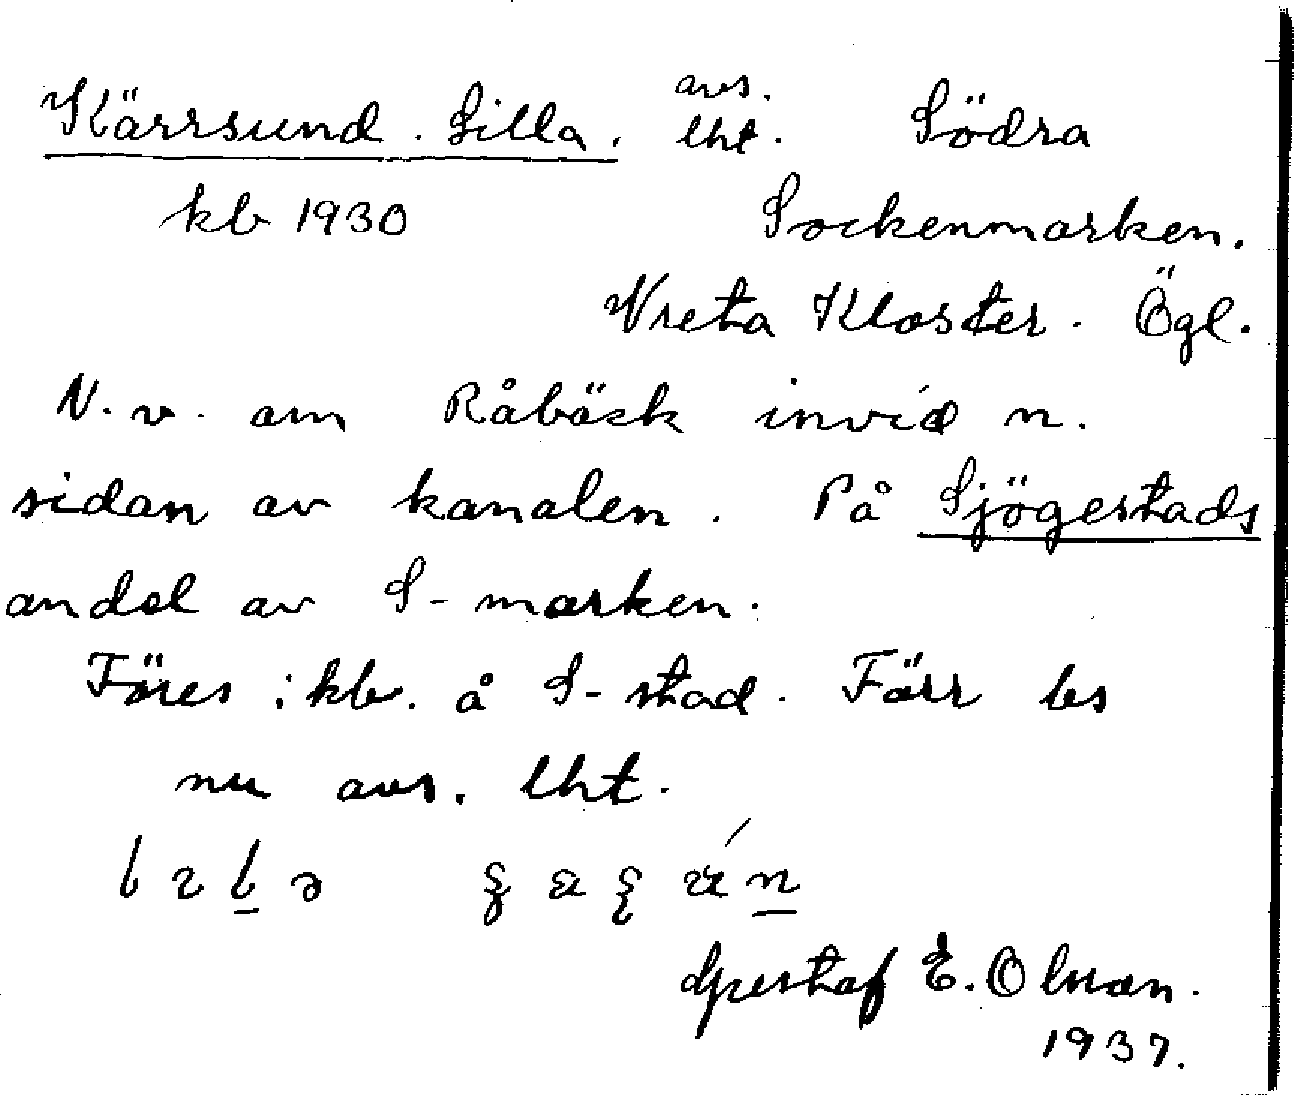 Kärrsund. Lilla. avs. lht. Södra
kb 1930 Sockenmarken.
Vreta Kloster. Ögl.
N. v. om Råbäck invid n.
sidan av kanalen. På Sjögestads
andel av S-marken.
Föres i kb. å S-stad. Förr bs
nu avs. lht.
Gustaf E. Olsson.
1937.